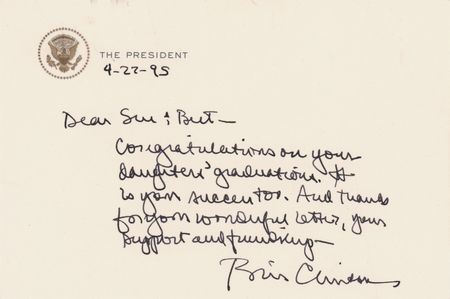 THE PRESIDENT
4-22-95
Dear Sue & Burt—
Congratulations on your
daughters' graduations. It
is your success too. And thanks
for your wonderful letter, your
support and friendship—
Bill Clinton